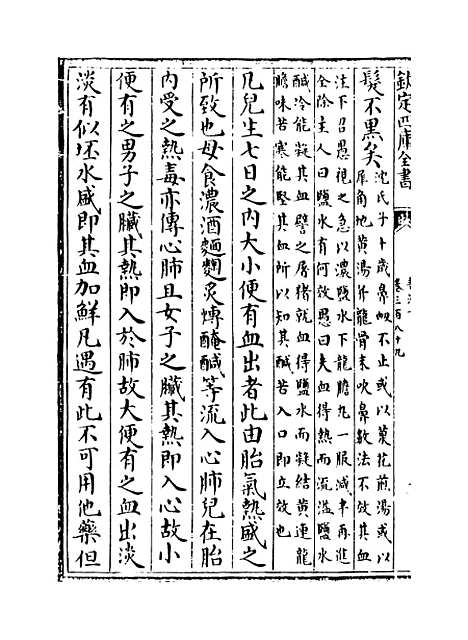 欽定四庫全書
卷三百八十九
髮不黑矣
沈氏子十歲鼻衂不止或以菓花煎湯或以
犀角地黄湯并龍骨末吹鼻數法不效其血
注下召愚視之急以濃鹽水下龍膽丸一服減半再進
全除主人曰鹽水有何效愚曰夫血得熱而流溢鹽水
鹹冷能凝其血譬之屠猪就血得鹽水而凝結黄連龍
膽味苦寒能堅其血所以知其鹹苦入口即立效也
凡兒生七日之内大小便有血出者此由胎氣熱盛之
所致也母食濃酒麵麴炙煿醃鹹等流入心肺兒在胎
内受之熱毒亦傳心肺且女子之臟其熱即入心故小
便有之男子之臟其熱即入於肺故大便有之血出淡
淡有似坯水盛即其血加鮮凡遇有此不可用他藥但